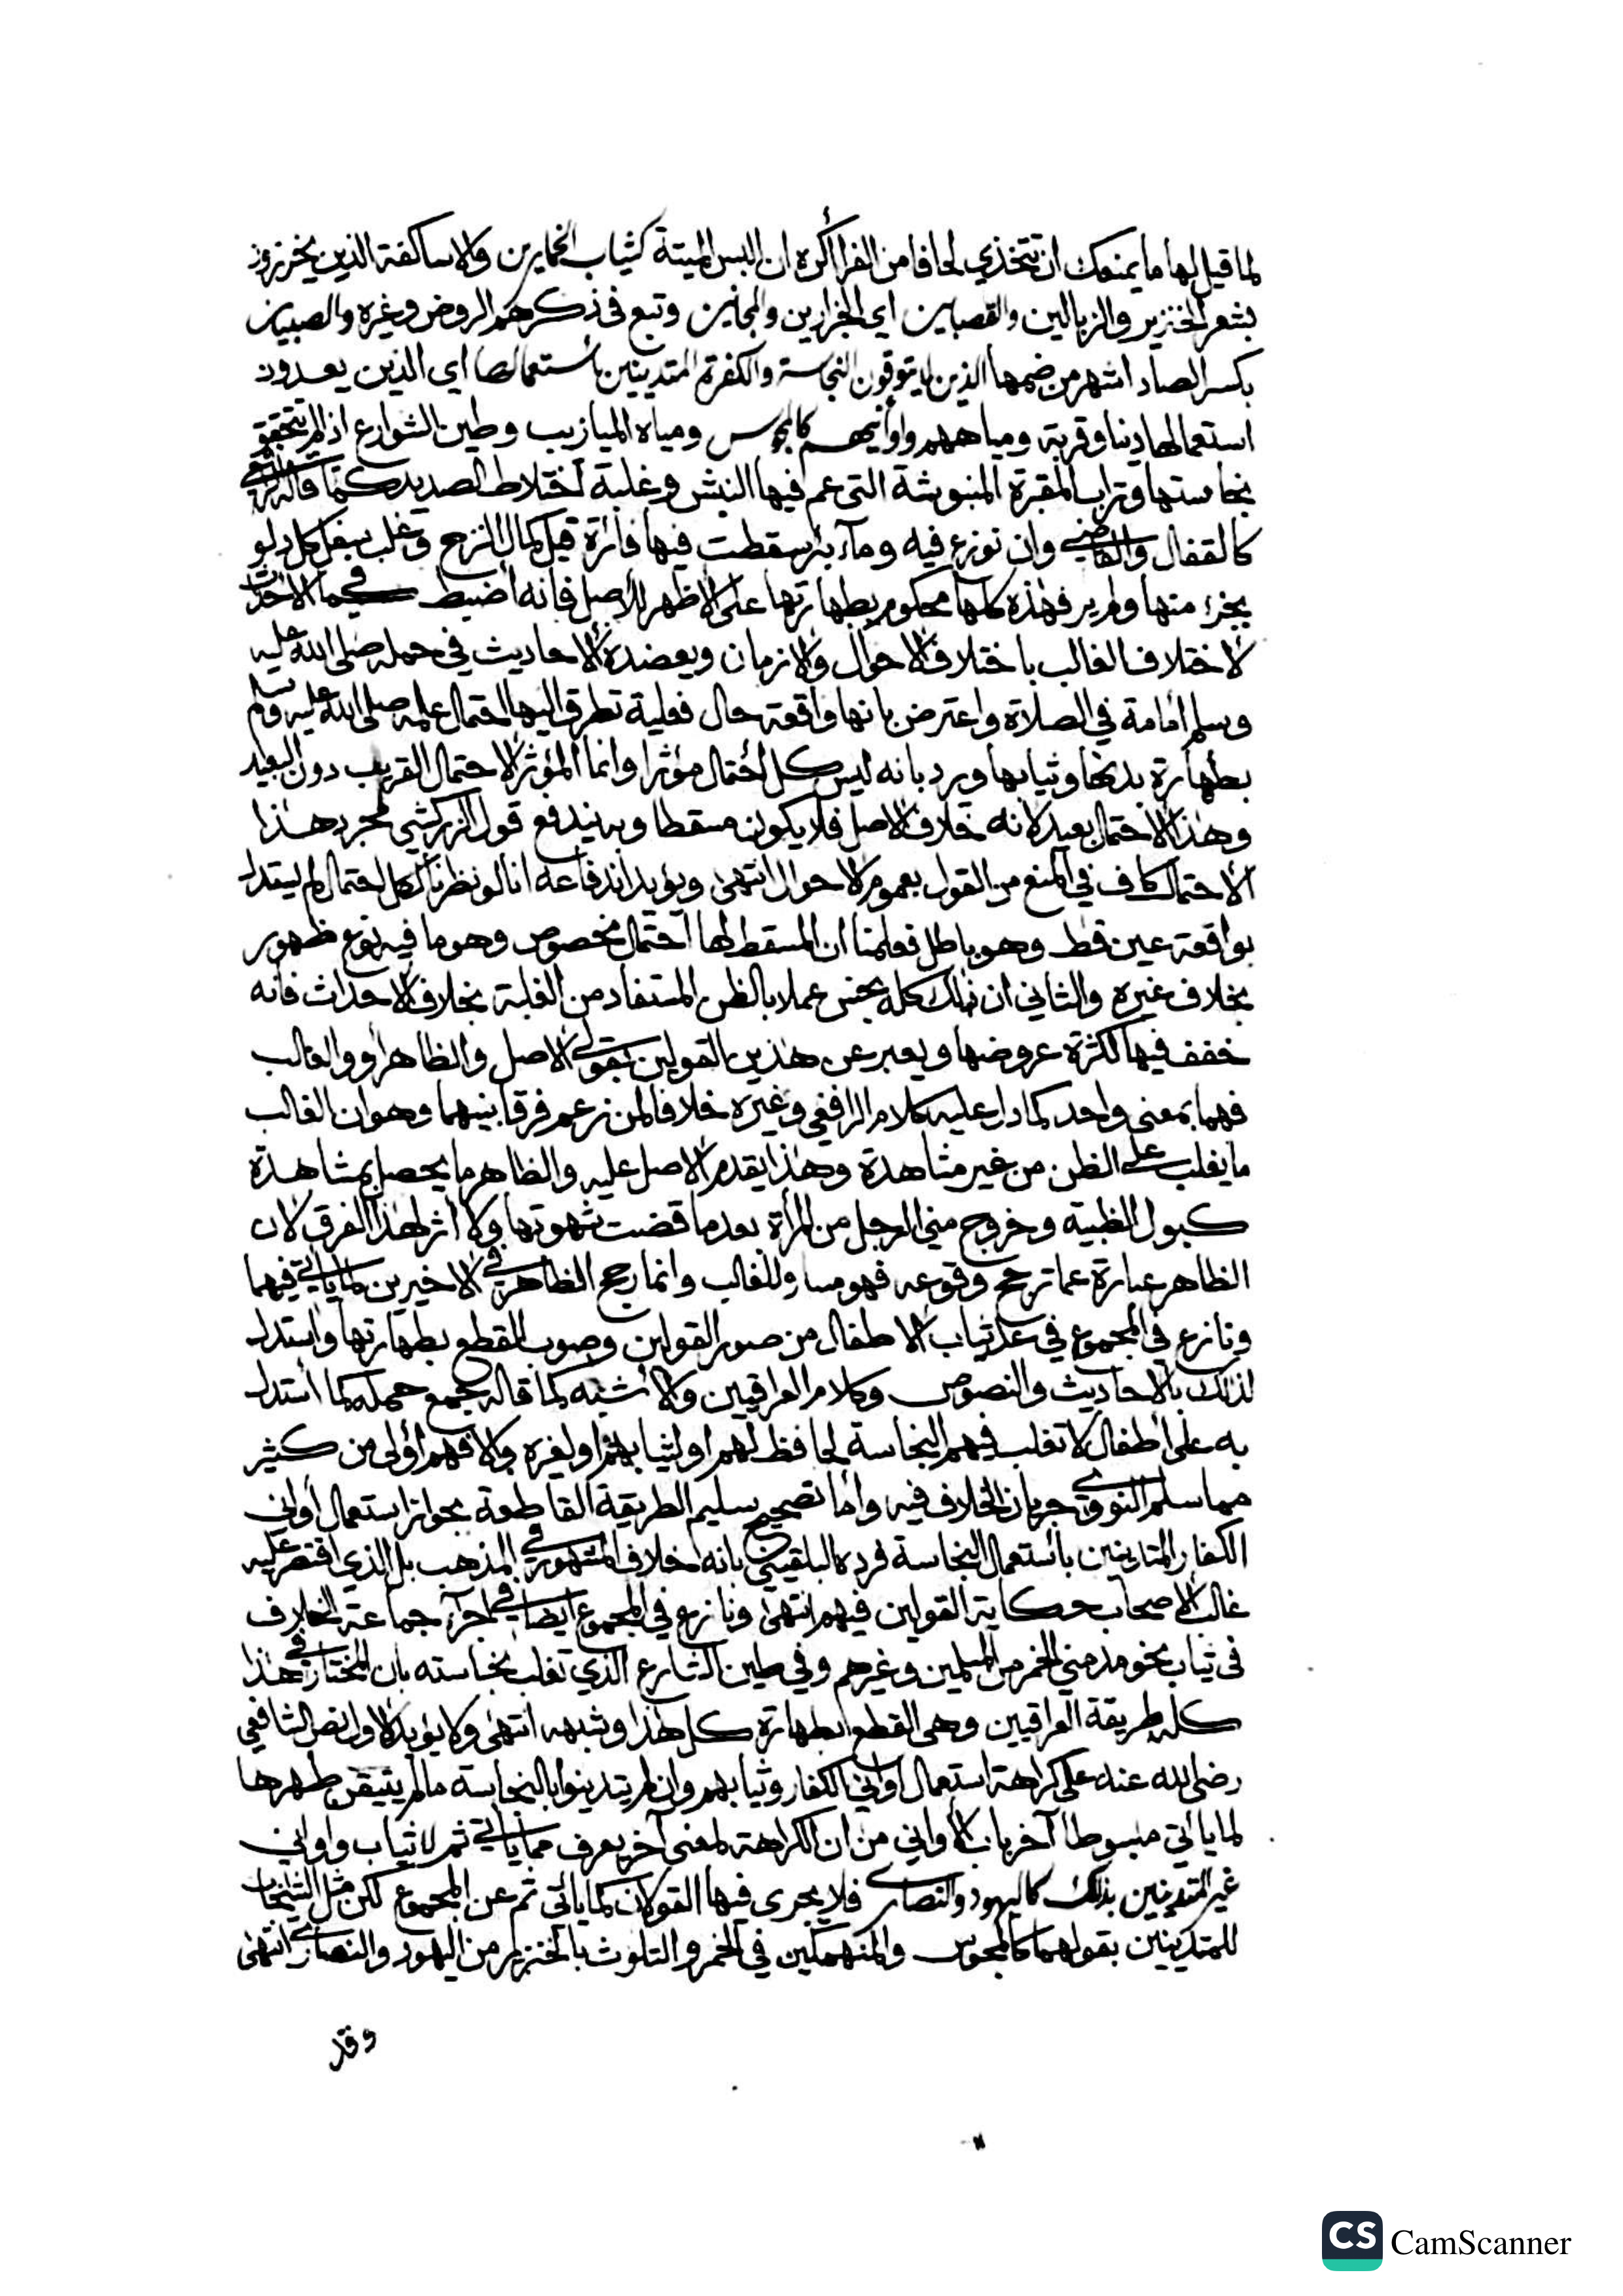 لما قيل لها ما يمنعك ان تتخذي لحافا من الفرا أكره ان البس الميتة كثياب الخمارين والاساكفة الذين يخرزون
بشعر الخنزير والزبالين والقصابين اي الجزارين والمجانين وتبع في ذكرهم الروض وغيره والصبيان
بكسر الصاد اشهر من ضمها الذين لا يتوقون النجاسة والكفرة المتدينين باستعمالها اي الذين يعدون
استعمالها دينا وقربة ومياههم واوانيهم كالمجوس ومياه الميازيب وطين الشوارع اذا لم تتحقق
نجاستها وتراب المقبرة المنبوشة التي عم فيها النبش وغلبة اختلاط الصديد كما قاله
كالقفال والقاضي وان نوزع فيه وماء بئر سقطت فيها فارة قبل كمال النزح وغلب كل دلو
منها ولم ير فهذه كلها محكوم بطهارتها على الاظهر للاصل فانه اضبط كما في الاحداث
لاختلاف الغالب باختلاف الاحوال والازمان ويعضده الاحاديث في حمله صلى الله عليه
وسلم امامة في الصلاة واعترض بانها واقعة حال فعلية تطرق اليها احتمال علمه صلى الله عليه وسلم
بطهارة بدنها وثيابها ويرد بانه ليس كل احتمال مؤثرا وانما المؤثر الاحتمال القريب دون البعيد
وهذا الاحتمال بعيد لانه خلاف الاصل فلا يكون مسقطا وبه يندفع قول الزركشي مجرد هذا
الاحتمال كاف في المنع من القول بعموم الاحوال انتهى ويؤيد اندفاعه انا لو نظرنا لكل احتمال لم يستدل
بواقعة عين قط وهو باطل فعلمنا ان المسقط لها احتمال مخصوص وهو ما فيه نوع ظهور
بخلاف غيره والثاني ان ذلك كله نجس عملا بالظن المستفاد من الغلبة بخلاف الاحداث فانه
خفف فيها لكثرة عروضها ويعبر عن هذين القولين بقولي الاصل والظاهر او والغالب
فهما بمعنى واحد كما دل عليه كلام الرافعي وغيره خلافا لمن زعم فرقا بينهما وهو ان الغالب
ما يغلب على الظن من غير مشاهدة وهذا يقدم الاصل عليه والظاهر ما يحصل بمشاهدة
كبول الظبية وخروج مني الرجل من المرأة بعد ما قضت شهوتها ولا اثر لهذا الفرق لان
الظاهر عبارة عما ترجح وقوعه فهو مساو للغالب وانما رجح الظاهر في الاخيرين لما ياتي فيهما
ونازع في المجموع في عد ثياب الاطفال من صور القولين وصوب القطع بطهارتها واستدل
لذلك بالاحاديث والنصوص وكلام العراقيين والاشبه كما قاله جمع حمله كما استدل
به على اطفال لا تغلب فيهم النجاسة لحافظ لهم او لثيابهم او لغيره والا فهم اولى من كثير
مما سلم النووي جريان الخلاف فيه واما تصحيح سليم الطريقة القاطعة بجواز استعمال اواني
الكفار المتدينين باستعمال النجاسة فرده البلقيني بانه خلاف المشهور في المذهب بل الذي اقتصر عليه
غالب الاصحاب حكاية القولين فيهم انتهى ونازع في المجموع ايضا في اجراء جماعة الخلاف
في ثياب نحو مدمني الخمر من المسلمين وغيرهم وفي طين الشارع الذي تغلب نجاسته بان المختار في هذا
كله طريقة العراقيين وهي القطع بطهارة كل هذا وشبهه انتهى ولا يؤيد الاول نص الشافعي
رضي الله عنه على كراهة استعمال اواني الكفار وثيابهم وان لم يتدينوا بالنجاسة ما لم يتيقن طهرها
لما ياتي مبسوطا آخر باب الاواني من ان الكراهة لمعنى آخر يعرف مما ياتي ثم لا ثياب واواني
غير المتدينين بذلك كاليهود والنصارى فلا يجرى فيها القولان كما ياتي ثم عن المجموع لكن مثل الشيخان
للمتدينين بقولهما كالمجوس والمنهمكين في الخمر والتلوث بالخنزير من اليهود والنصارى انتهى
وقد
CS CamScanner